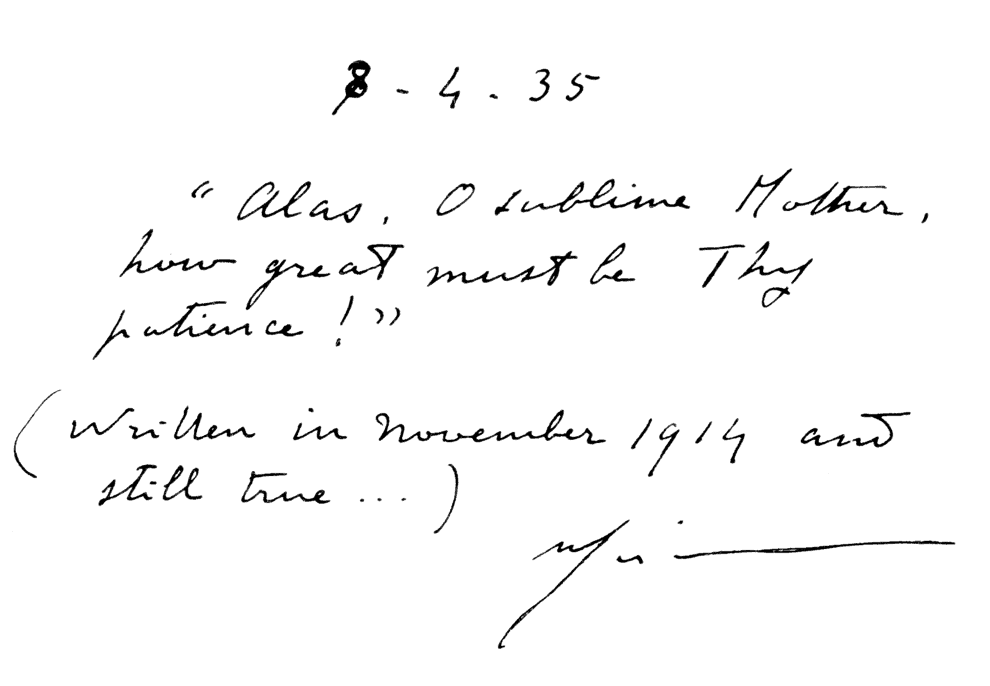 8 - 4 - 35
"Alas, O sublime Mother,
how great must be Thy
patience!"
(Written in November 1914 and
still true ...)